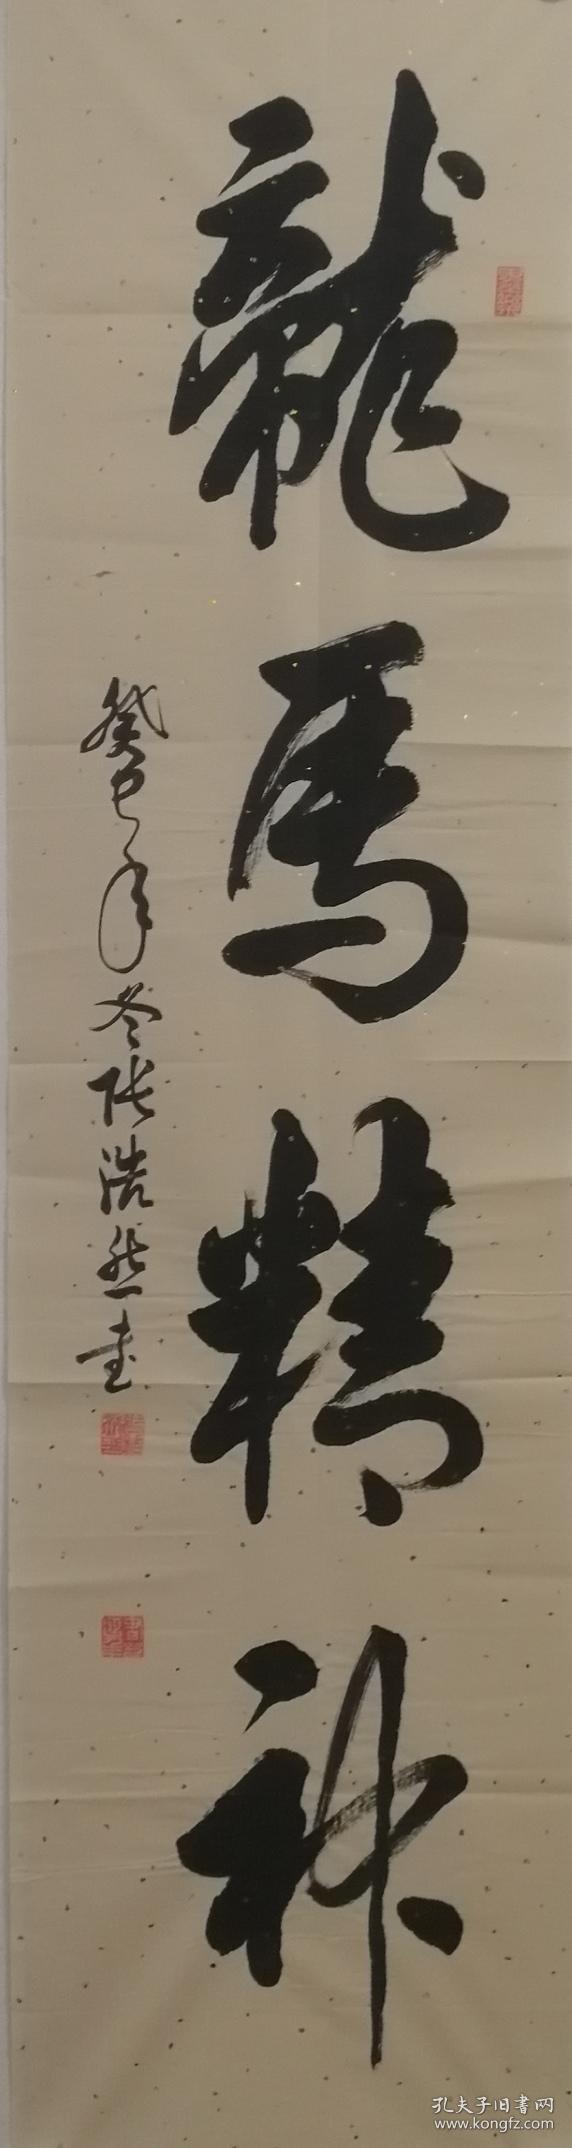 龍馬精神
癸巳年冬張浩然書
孔夫子旧书网
www.kongfz.com